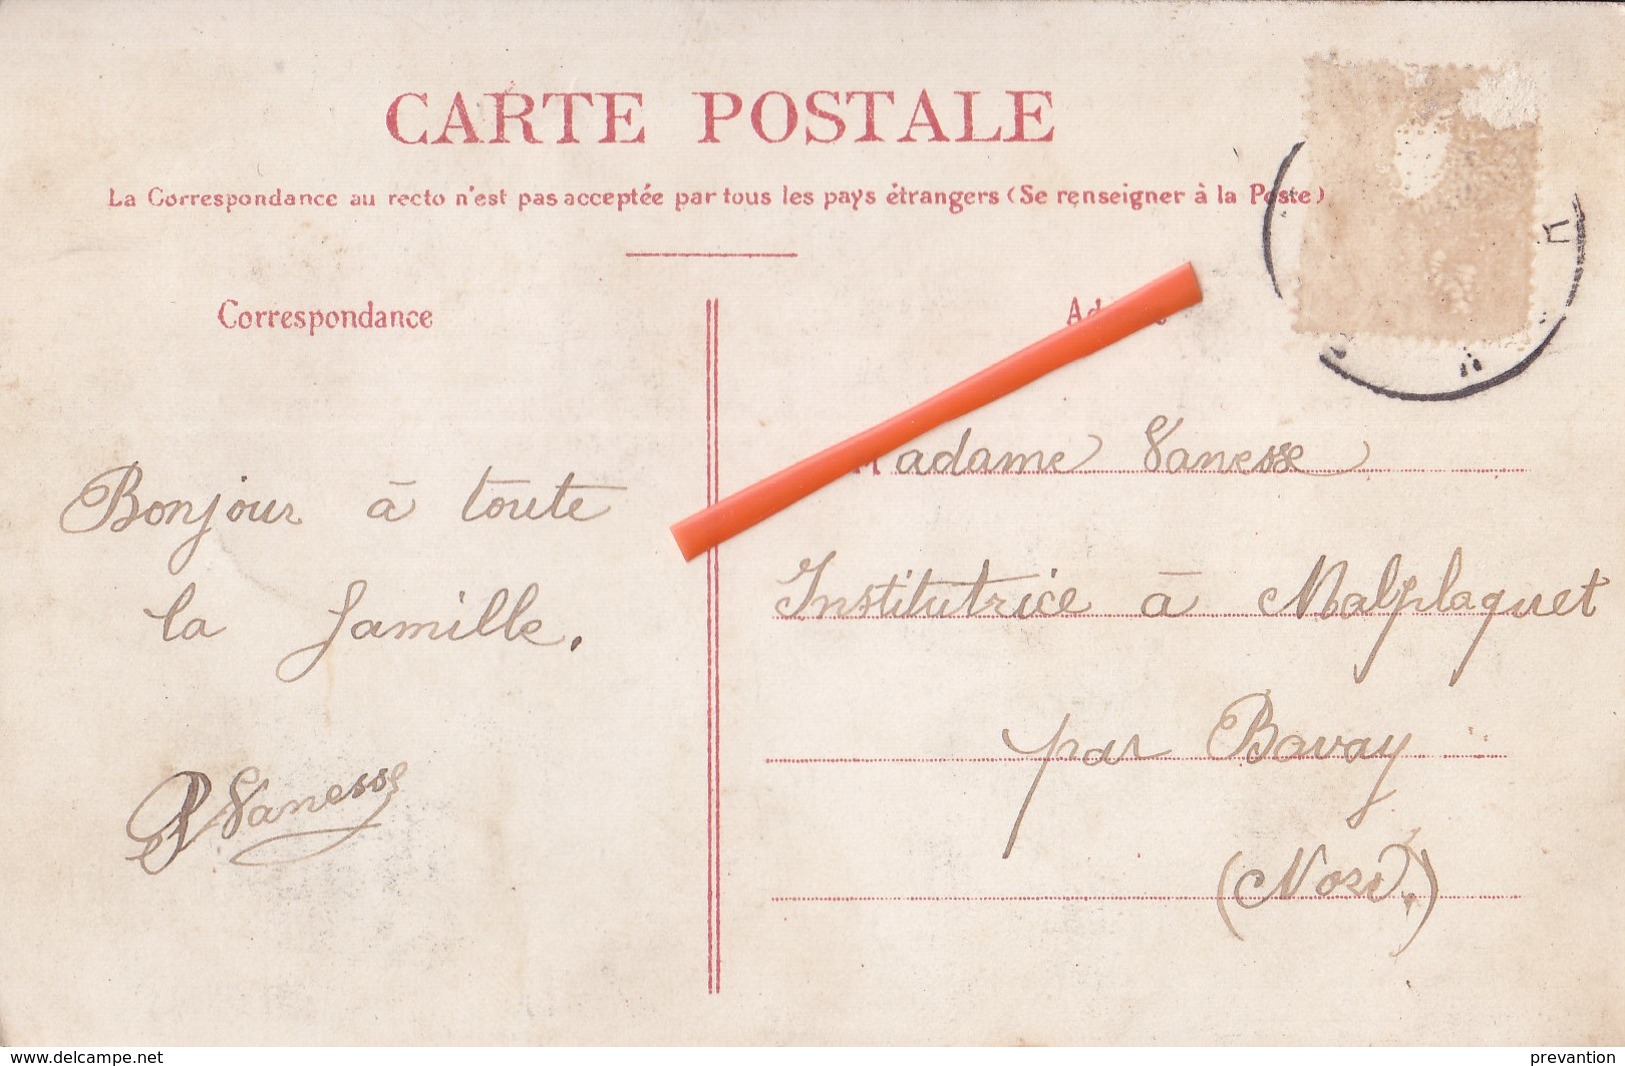 CARTE POSTALE
La Correspondance au recto n'est pas acceptée par tous les pays étrangers (Se renseigner à la Poste)
Correspondance
Bonjour à toute
la famille.
Vanesse
Madame Vanesse
Institutrice à Malplaquet
par Bavay
(Nord.)
www.delcampe.net
prevantion